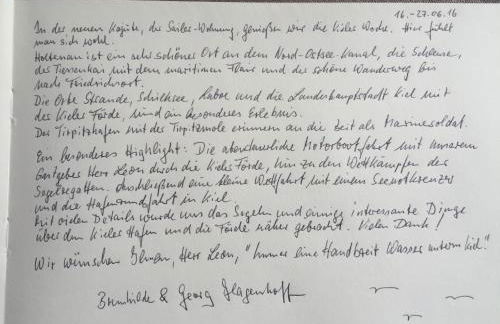 16.-27.06.16
In der neuen Kajüte, der Sailer-Wohnung, genießen wir die Kieler Woche. Hier fühlt
man sich wohl.
Holtenau ist ein sehr schöner Ort an dem Nord-Ostsee-Kanal, die Schleuse,
der Tiessenkai mit dem maritimen Flair und der schöne Wanderweg bis
nach Friedrichsort.
Die Orte Strande, Schilksee, Laboe und die Landeshauptstadt Kiel mit
der Kieler Förde, sind ein besonderes Erlebnis.
Der Tirpitzhafen mit der Tirpitzmole erinnern an die Zeit als Marinesoldat.
Ein besonderes Highlight: Die abenteuerliche Motorbootfahrt mit unserem
Gastgeber Herr Leon durch die Kieler Förde, hin zu den Wettkämpfen der
Segelregatten. Anschließend eine kleine Wettfahrt mit einem Seenotkreuzer
und die Hafenrundfahrt in Kiel.
Mit vielen Details wurde uns das Segeln und einige interessante Dinge
über den Kieler Hafen und die Förde näher gebracht. Vielen Dank!
Wir wünschen Ihnen, Herr Leon, "Immer eine Handbreit Wasser unterm Kiel."
Brunhilde & Georg